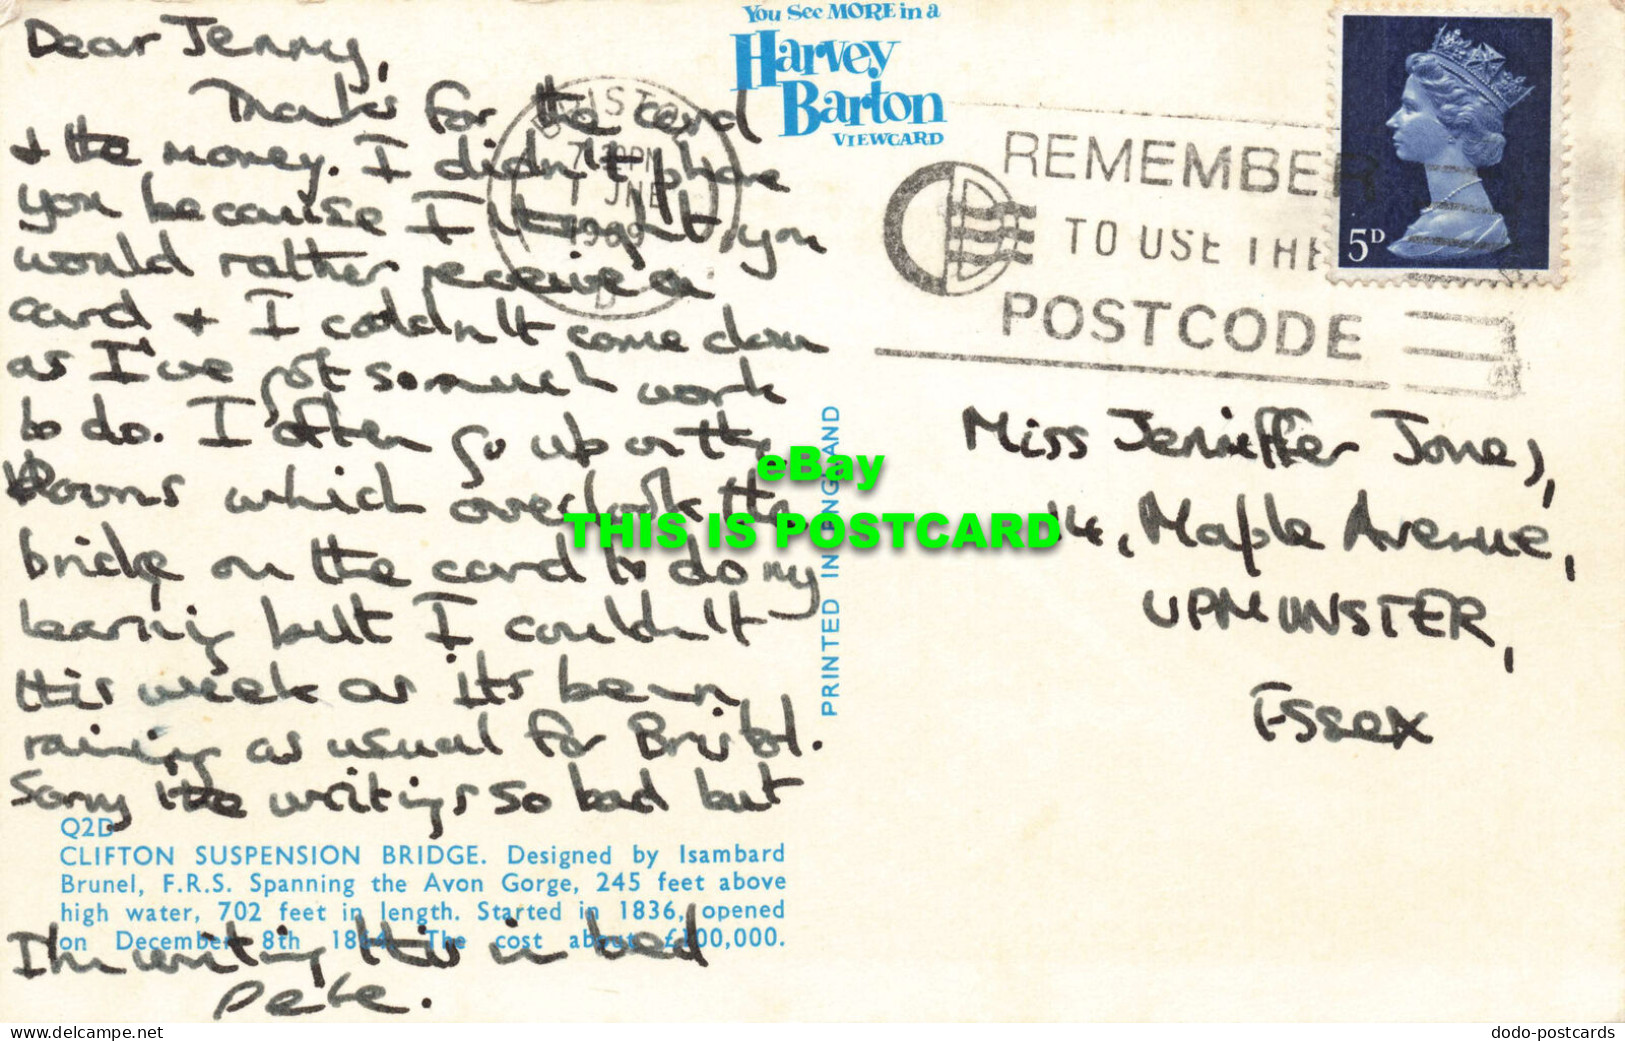 Dear Jenny,
Thanks for the card
+ the money. I didn't phone
you because I thought you
would rather receive a
card + I couldn't come down
as I've got so much work
to do. I often go up on the
Downs which overlook the
bridge on the card to do my
learning but I couldn't
this week as its been
raining as usual for Bristol.
Sorry the writing's so bad but
I'm writing this in bed
Pete.
Q2D
CLIFTON SUSPENSION BRIDGE. Designed by Isambard
Brunel, F.R.S. Spanning the Avon Gorge, 245 feet above
high water, 702 feet in length. Started in 1836, opened
on December 8th 1864. The cost about £100,000.
You See MORE in a
Harvey
Barton
VIEWCARD
PRINTED IN ENGLAND
BRISTOL
PM
JNE
1969
REMEMBER
TO USE THE
POSTCODE
5D
Miss Jenieffer Jones,
14, Maple Avenue,
UPMINSTER,
Essex
eBay
THIS IS POSTCARD
www.delcampe.net
dodo-postcards